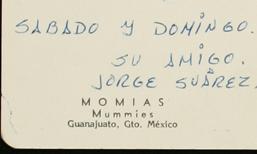 SABADO Y DOMINGO.
SU AMIGO.
JORGE SUÁREZ.
MOMIAS
Mummies
Guanajuato, Gto. México